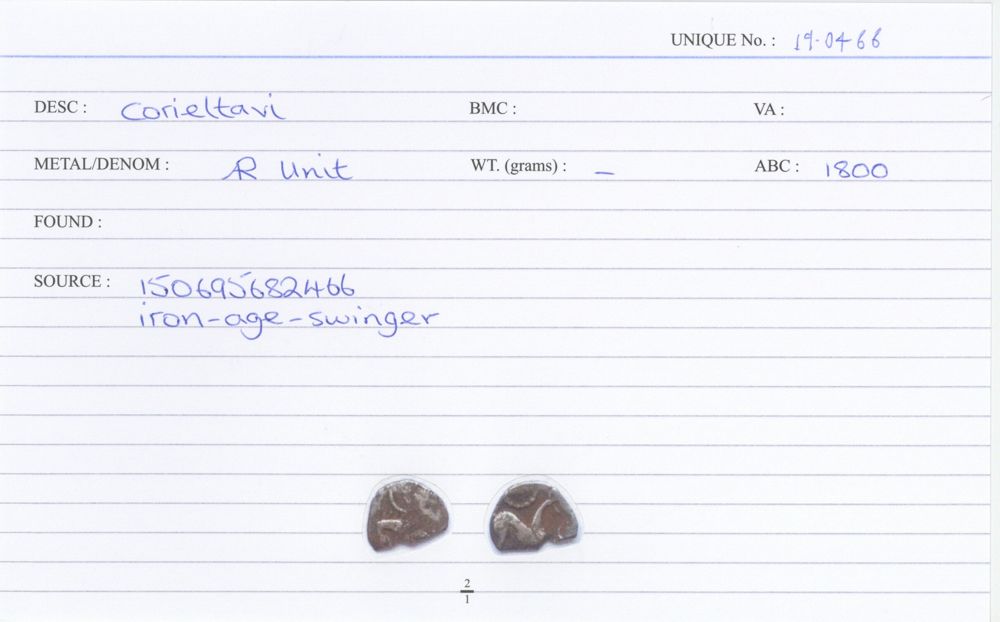 UNIQUE No. : 19-0466
DESC : Corieltavi BMC : VA :
METAL/DENOM : AR Unit WT. (grams) : – ABC : 1800
FOUND :
SOURCE : 150695682466
iron-age-swinger
2
1